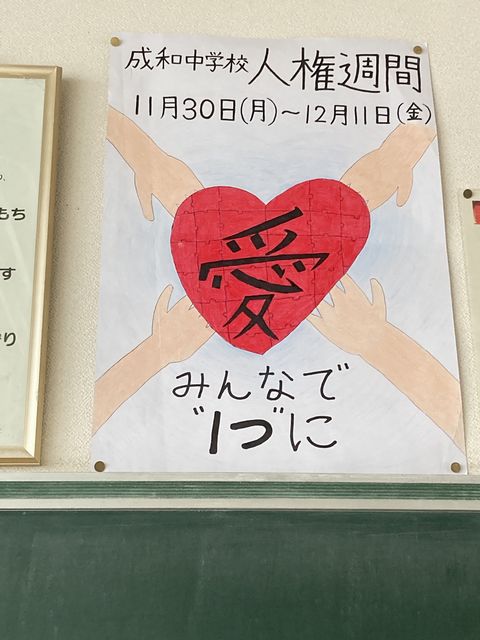 成和中学校 人権週間
11月30日(月)～12月11日(金)
愛
みんなで
"1つ"に
もち
す
り